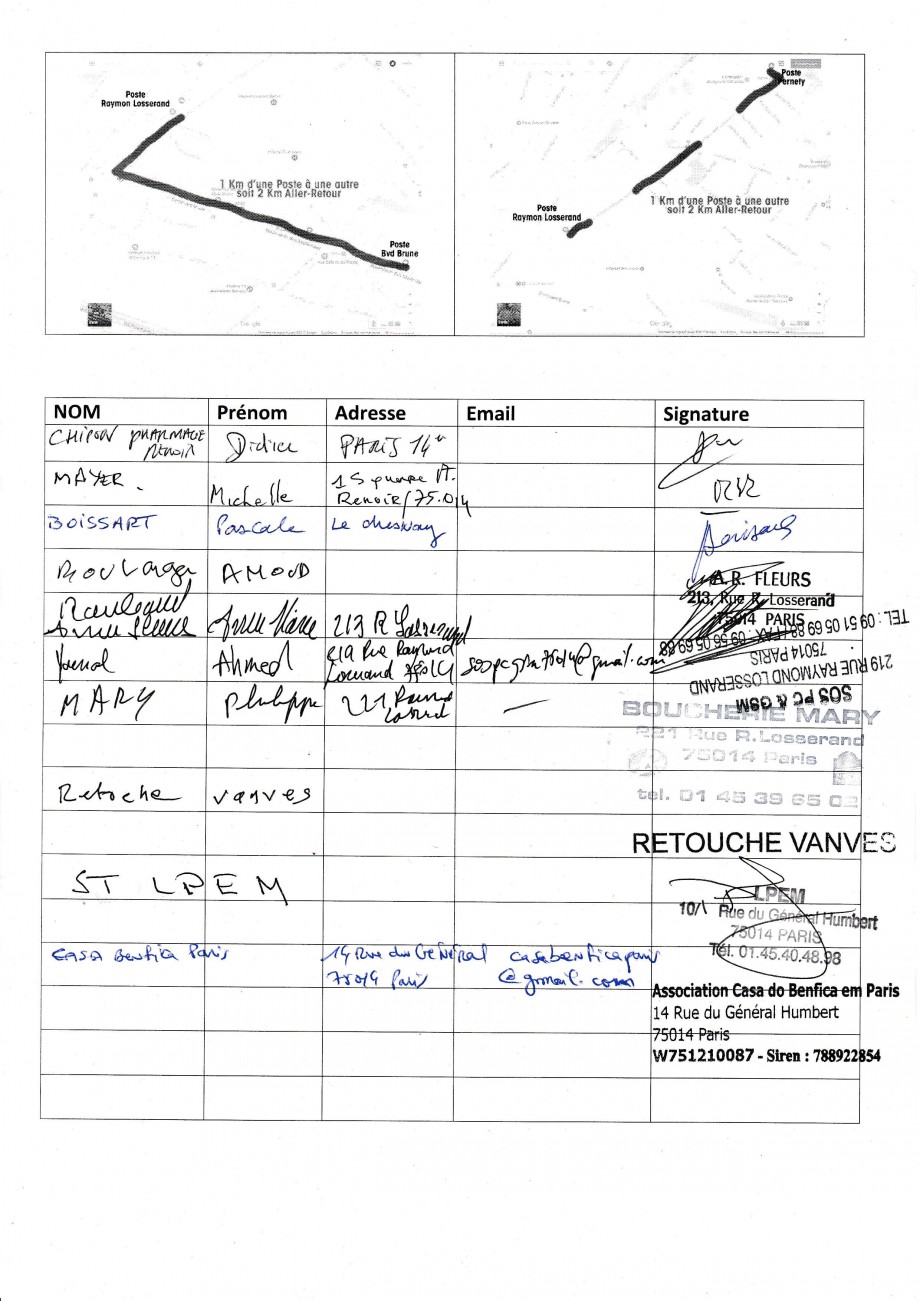 Poste
Raymon Losserand
1 Km d'une Poste à une autre
soit 2 Km Aller-Retour
Poste
Bvd Brune
Poste
Pernety
1 Km d'une Poste à une autre
soit 2 Km Aller-Retour
Poste
Raymon Losserand
NOM Prénom Adresse Email Signature
CHIRON PHARMACIE RENOIR Didier PARIS 14e
MAYER Michelle 1 Square A.
Renoir / 75.014
BOISSART Pascale Le chesnay
Boulanger AMOUD
213 R Losserand
A.R. FLEURS
213, Rue R. Losserand
75014 PARIS
Ahmed 219 Rue Raymond
Losserand 75014 sospcgsm75014@gmail.com
SOS PC & GSM
219 RUE RAYMOND LOSSERAND
75014 PARIS
TEL : 09 51 05 69 88 FAX : 09 56 05 69 88
MARY Philippe 221 Raymond
Losserand —
BOUCHERIE MARY
221 Rue R.Losserand
75014 Paris
tel. 01 45 39 65 02
Retoche vanves
RETOUCHE VANVES
ST LPEM
LPEM
Rue du Général Humbert
75014 PARIS
Tél. 01.45.40.48.98
CASA Benfica Paris 14 Rue du Général casabenficaparis
75014 Paris @gmail.com
Association Casa do Benfica em Paris
14 Rue du Général Humbert
75014 Paris
W751210087 - Siren : 788922854